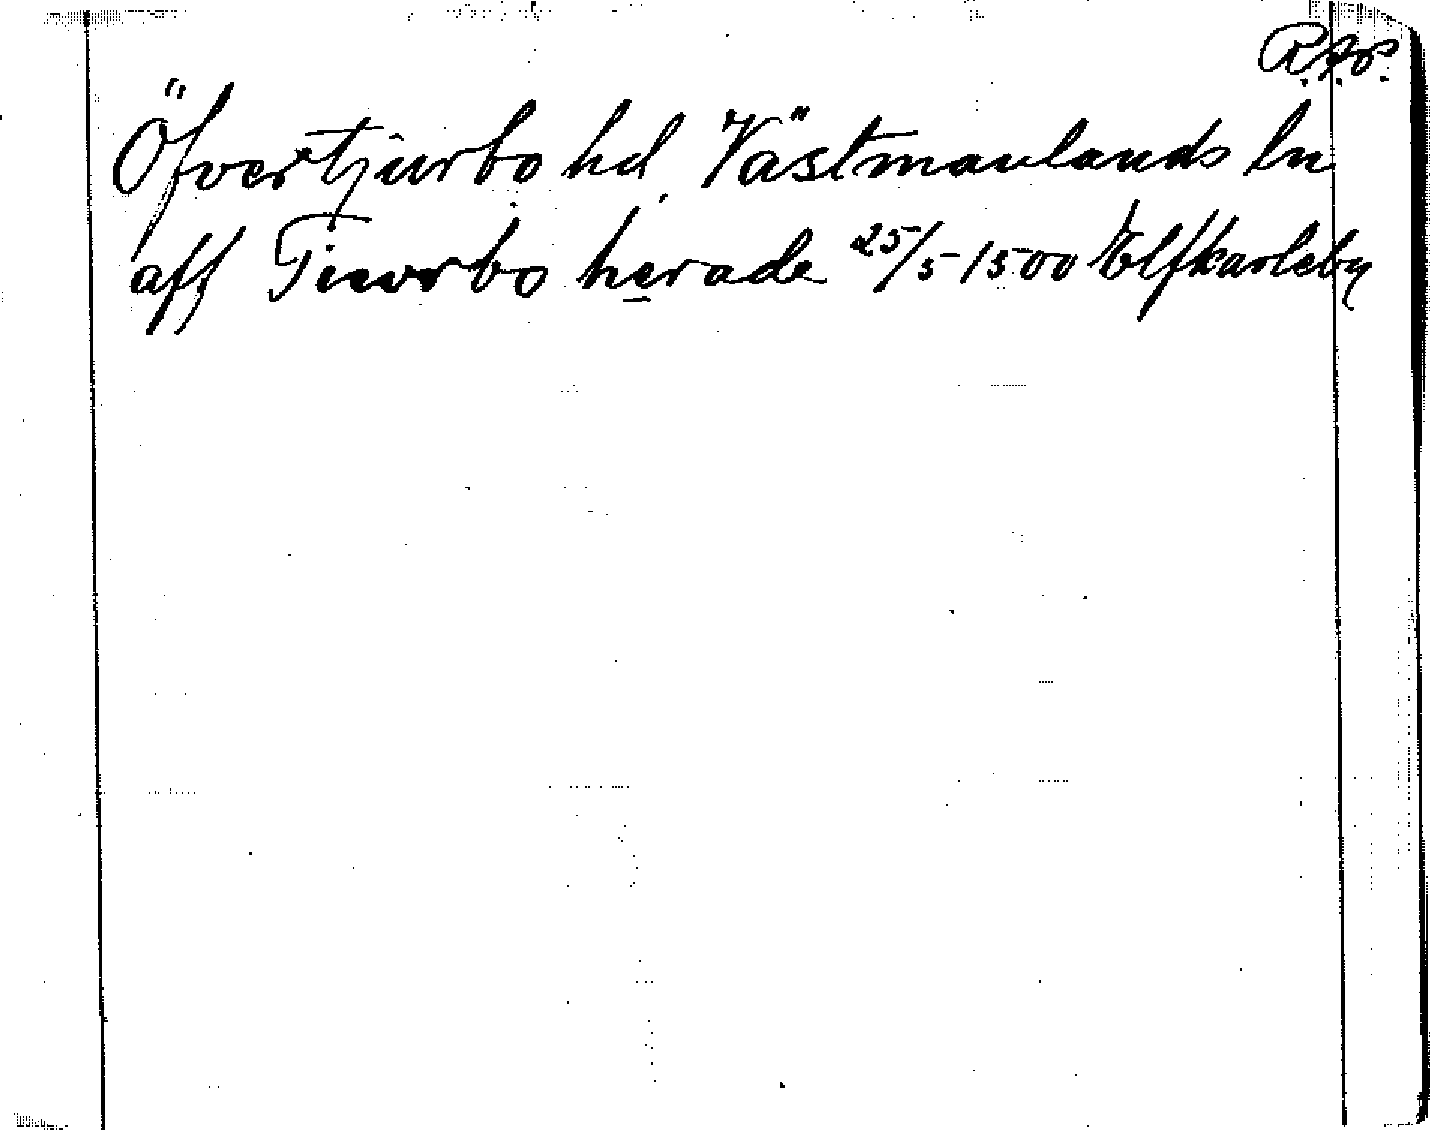 R.A.P.
Öfvertjurbo hd, Västmanlands ln
aff Tiwrbo herade 25/5 1500 Elfkarleby